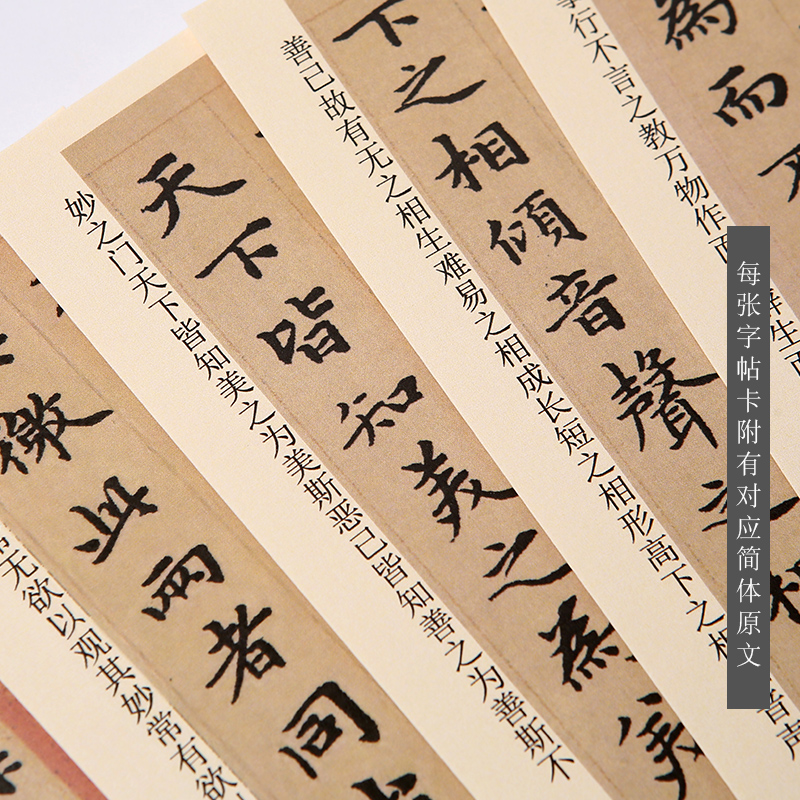 无欲以观其妙常有欲
徼此兩者同
妙之门天下皆知美之为美斯恶己皆知善之为善斯不
天下皆知美之為美
善己故有无之相生难易之相成长短之相形高下之相
音声
下之相傾音聲之相
行不言之教万物作而
生而
為而不
每张字帖卡附有对应简体原文